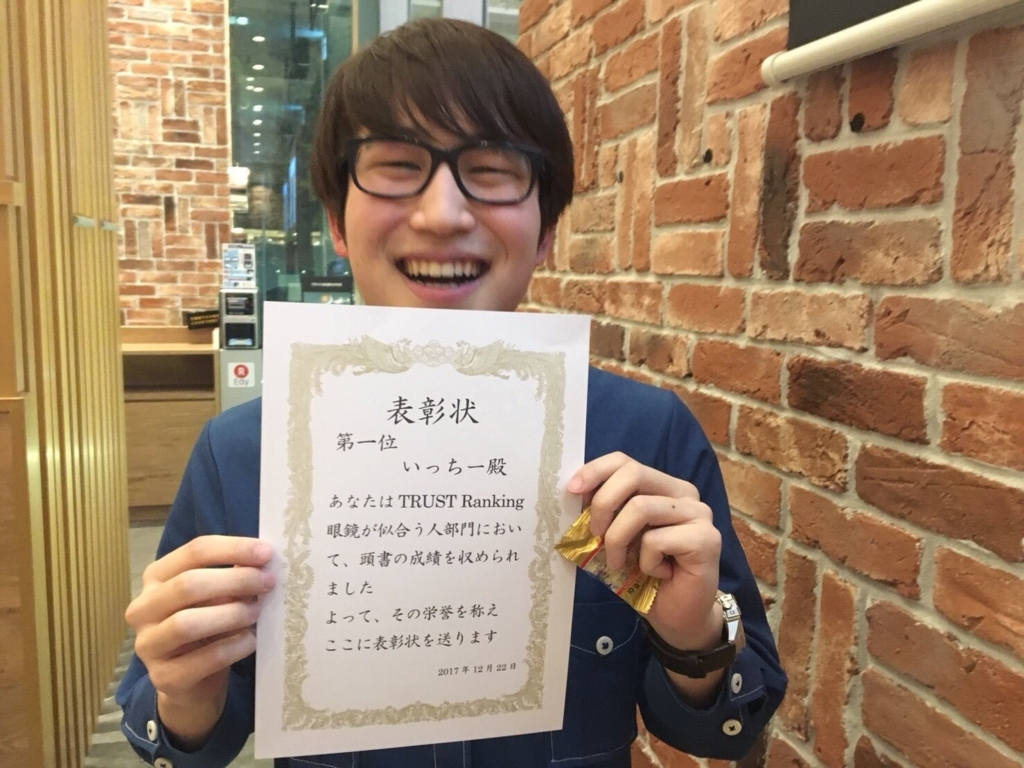 表彰状
第一位
いっちー殿
あなたは TRUST Ranking
眼鏡が似合う人部門におい
て、頭書の成績を収められ
ました
よって、その栄誉を称え
ここに表彰状を送ります
2017年12月22日
R
Edy